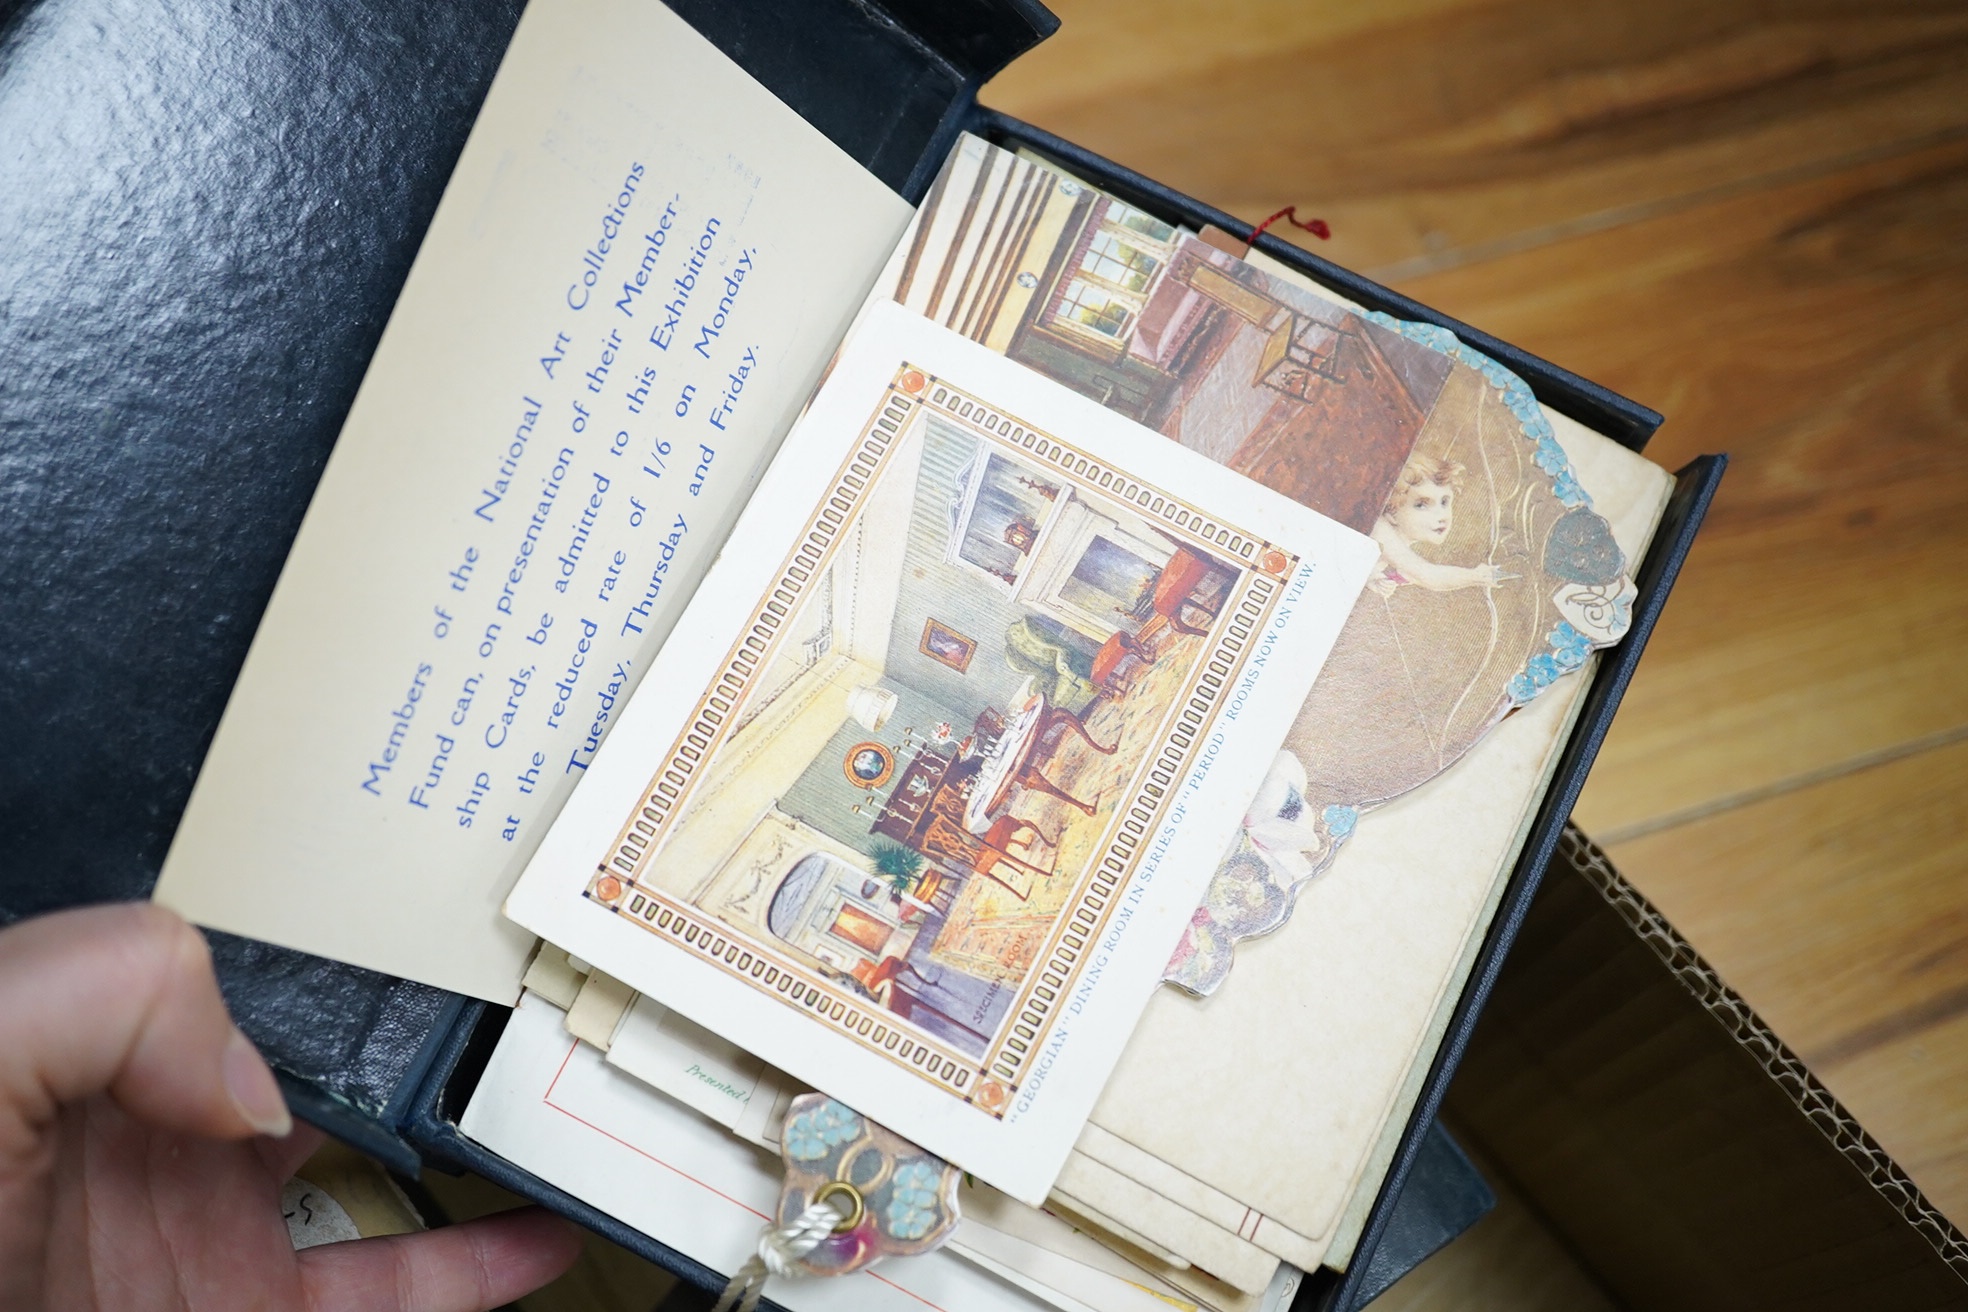 Members of the National Art Collections
Fund can, on presentation of their Member-
ship Cards, be admitted to this Exhibition
at the reduced rate of 1/6 on Monday,
Tuesday, Thursday and Friday.
SPECIMEN ROOM
"GEORGIAN" DINING ROOM IN SERIES OF "PERIOD" ROOMS NOW ON VIEW.
Presented